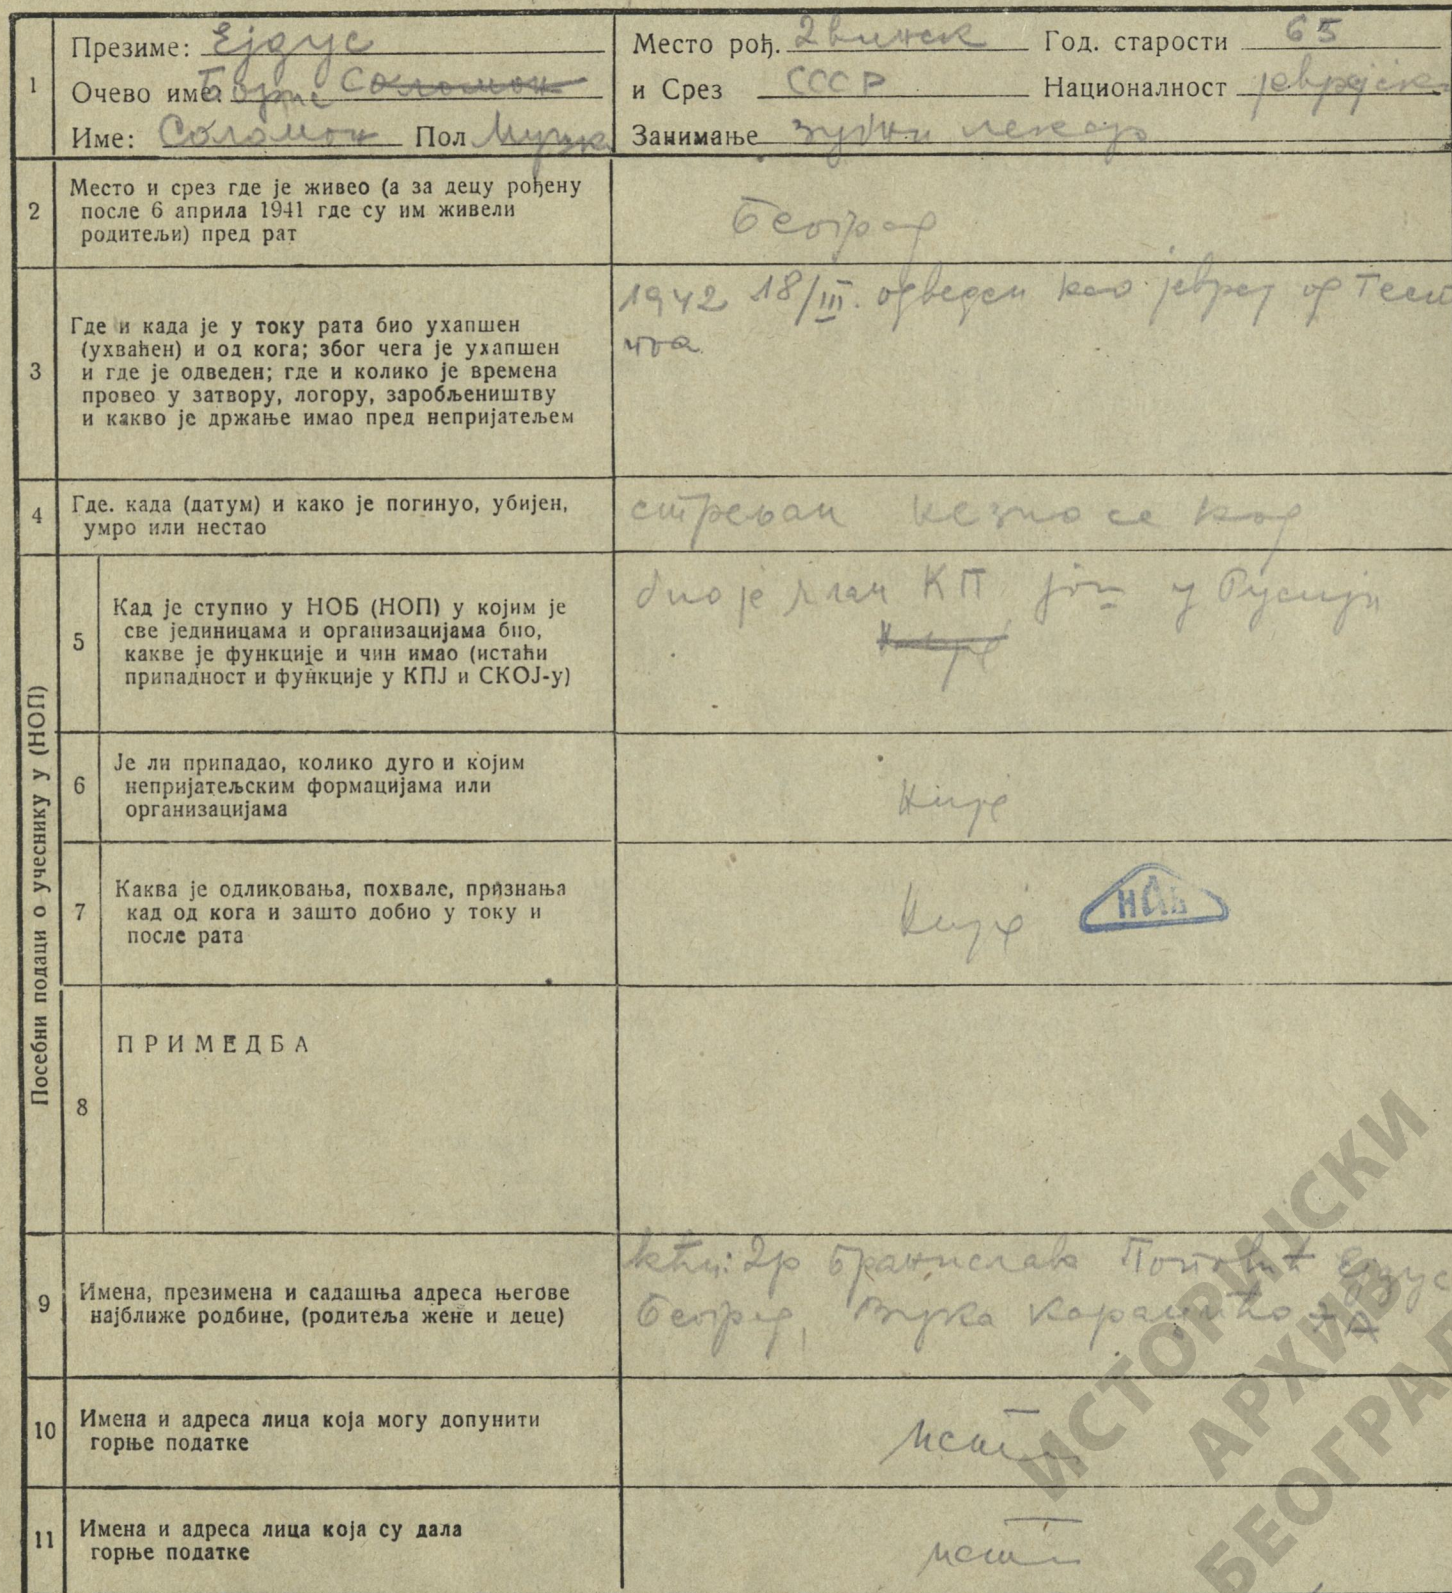 1
Презиме: Ејдус
Очево име: Борис Соломон
Име: Соломон Пол Мушк
Место рођ. Двинск Год. старости 65
и Срез СССР Националност јеврејска
Занимање зубни лекар
2
Место и срез где је живео (а за децу рођену
после 6 априла 1941 где су им живели
родитељи) пред рат
Београд
3
Где и када је у току рата био ухапшен
(ухваћен) и од кога; због чега је ухапшен
и где је одведен; где и колико је времена
провео у затвору, логору, заробљеништву
и какво је држање имао пред непријатељем
1942 18/III. одведен као јевреј од Гест
4
Где. када (датум) и како је погинуо, убијен,
умро или нестао
стрељан незна се код
Посебни подаци о учеснику у (НОП)
5
Кад је ступио у НОБ (НОП) у којим је
све јединицама и организацијама био,
какве је функције и чин имао (истаћи
припадност и функције у КПЈ и СКОЈ-у)
био је члан КП још у Русији
Није
6
Је ли припадао, колико дуго и којим
непријатељским формацијама или
организацијама
Није
7
Каква је одликовања, похвале, признања
кад од кога и зашто добио у току и
после рата
Није
8
ПРИМЕДБА
9
Имена, презимена и садашња адреса његове
најближе родбине, (родитеља жене и деце)
кћи: Др Бранислава Поповић Ејдус
Београд, Вука Караџића
10
Имена и адреса лица која могу допунити
горње податке
исти
11
Имена и адреса лица која су дала
горње податке
исти
ИСТОРИЈСКИ
АРХИВ
БЕОГРАД